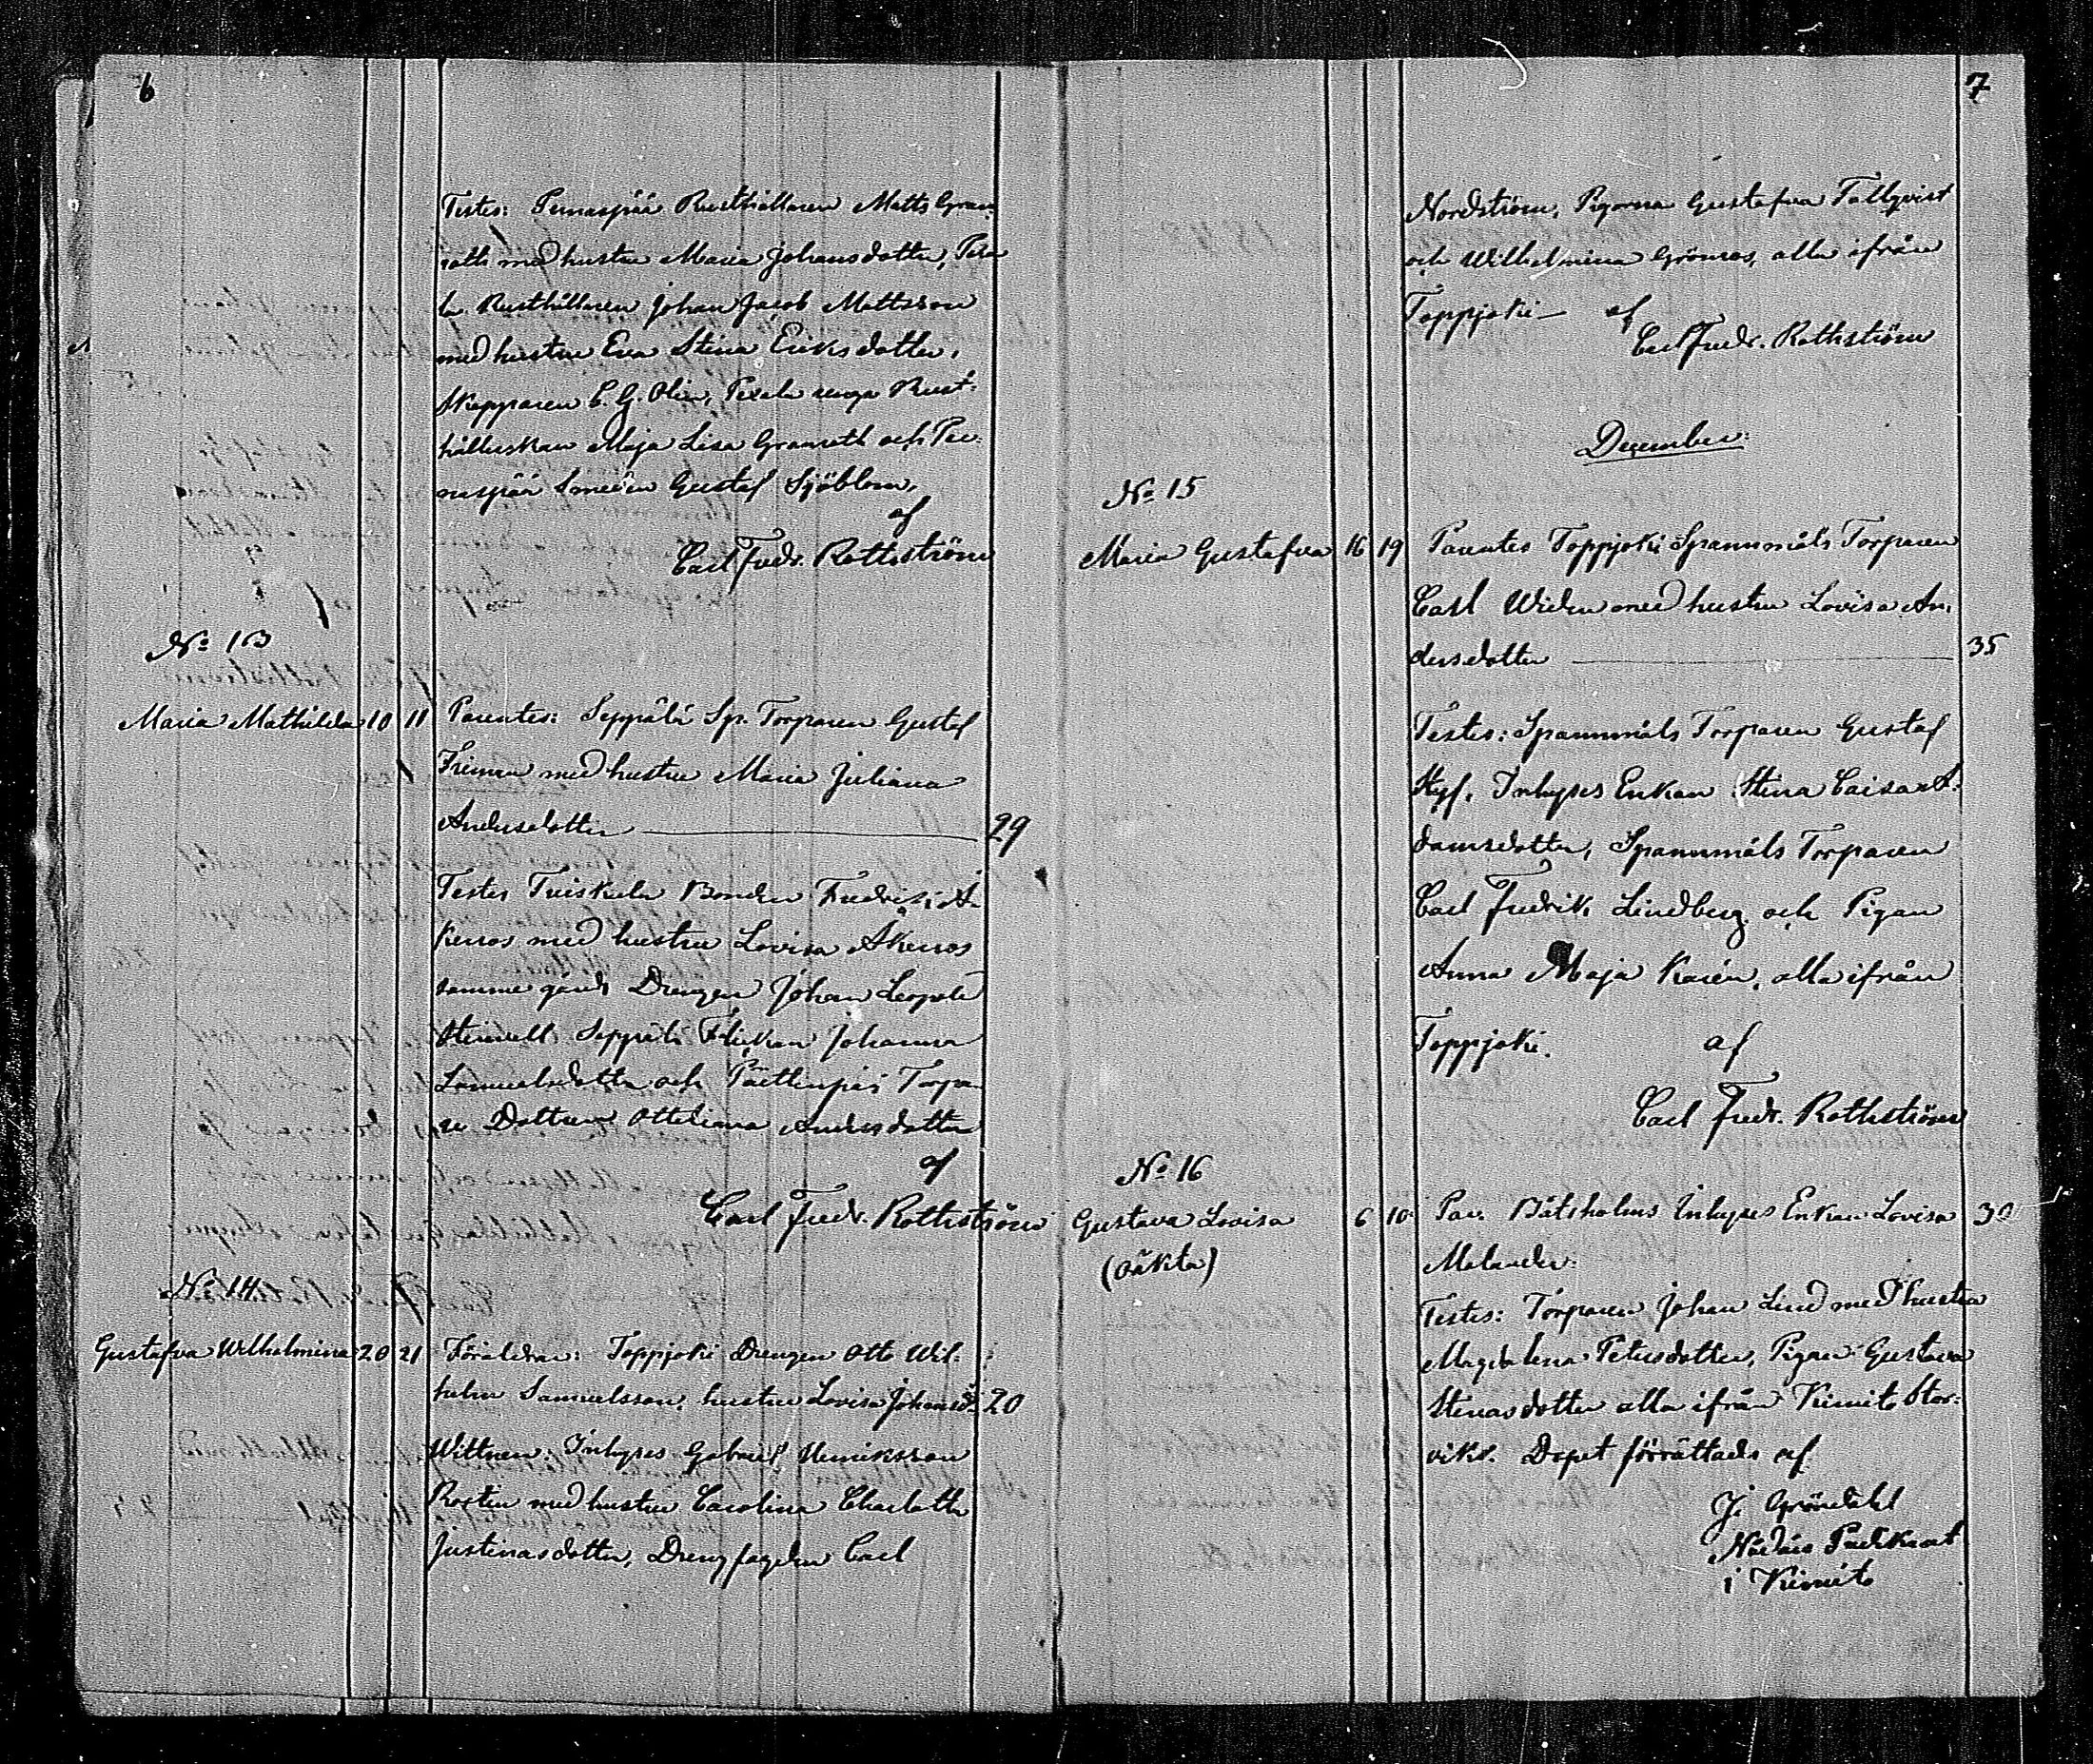 6
Testes: Pernaspää Rusthållaren Matts Gran
roth med hustru Maria Johansdotter, Pexa
la Rusthållaren Johan Jacob Mattsson
med hustru Eva Stina Eriksdotter,
Skepparen C. G. Olin, Pexala unga Rust-
hållerskan Maja Lisa Granroth och Per-
naspää Smeden Gustaf Sjöblom,
af
Carl Fredr. Rothström
No 13
Maria Mathilda 10 11 Parentes: Seppälä Sp. Torparen Gustaf
Friman med hustru Maria Juliana
Andersdotter 29
Testes Tuiskula Bonden Fredrik Å
kerros med hustru Lovisa Åkerros
samme gård, Drengen Johan Leopold
Seppälä Flickan Johanna
Samuelsdotter och Torpa
re Dottren Otteliana Andersdotter
af
Carl Fredr. Rothström
No 14
Gustafva Wilhelmina 20 21 Föräldrar: Toppjoki Drengen Otto Wil-
helm Samuelsson, hustru Lovisa Johansd: 20
Wittnen: Inhyses Gabriel Henriksson
Rostin med hustru Carolina Charlotta
Justinasdotter, Drengfogden Carl
7
Nordström, Pigorna Gustafva Fallqvist
och Wilhelmina Grönros, alla ifrån
Toppjoki — af
Carl Fredr. Rothström
December:
No 15
Maria Gustafva 16 19 Parentes Toppjoki Spannmåls Torparen
Carl Widen med hustru Lovisa An-
dersdotter 35
Testes: Spannmåls Torparen Gustaf
Styf, Inhyses Enkan Stina Caisa A-
damsdotter, Spannmåls Torparen
Carl Fredrik Lindberg och Pigan
Anna Maja Karén, alla ifrån
Toppjoki. af
Carl Fredr. Rothström
No 16
Gustava Lovisa 6 10 Par. Båtsholms Inhyses Enkan Lovisa 30
(oäkta)
Melander.
Testes: Torparen Johan Lind med hustru
Magdalena Petersdotter, Pigan Gustava
Stenasdotter alla ifrån Kimito Stor-
vik. Dopet förrättads af
J. Gröndahl
Nådårs Predikant
i Kimito